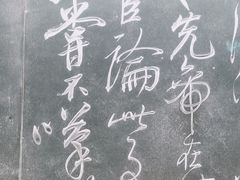 先帝在
臣論此事
嘗不嘆